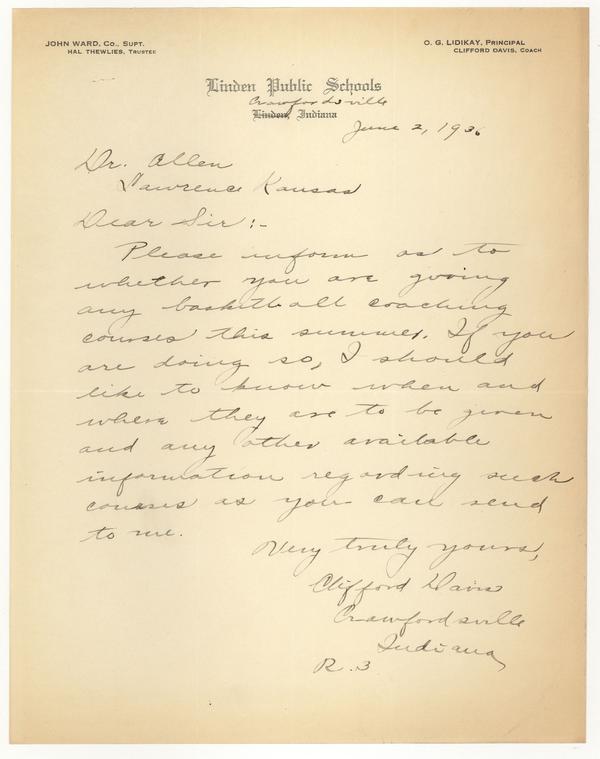 JOHN WARD, Co., Supt.
HAL THEWLIES, Trustee
O. G. LIDIKAY, Principal
CLIFFORD DAVIS, Coach
Linden Public Schools
Crawfordsville
Linden, Indiana
June 2, 1936
Dr. Allen
Lawrence Kansas
Dear Sir:-
Please inform as to
whether you are giving
any basketball coaching
courses this summer. If you
are doing so, I should
like to know when and
where they are to be given
and any other available
information regarding such
courses as you can send
to me.
Very truly yours,
Clifford Davis
Crawfordsville
Indiana
R. 3